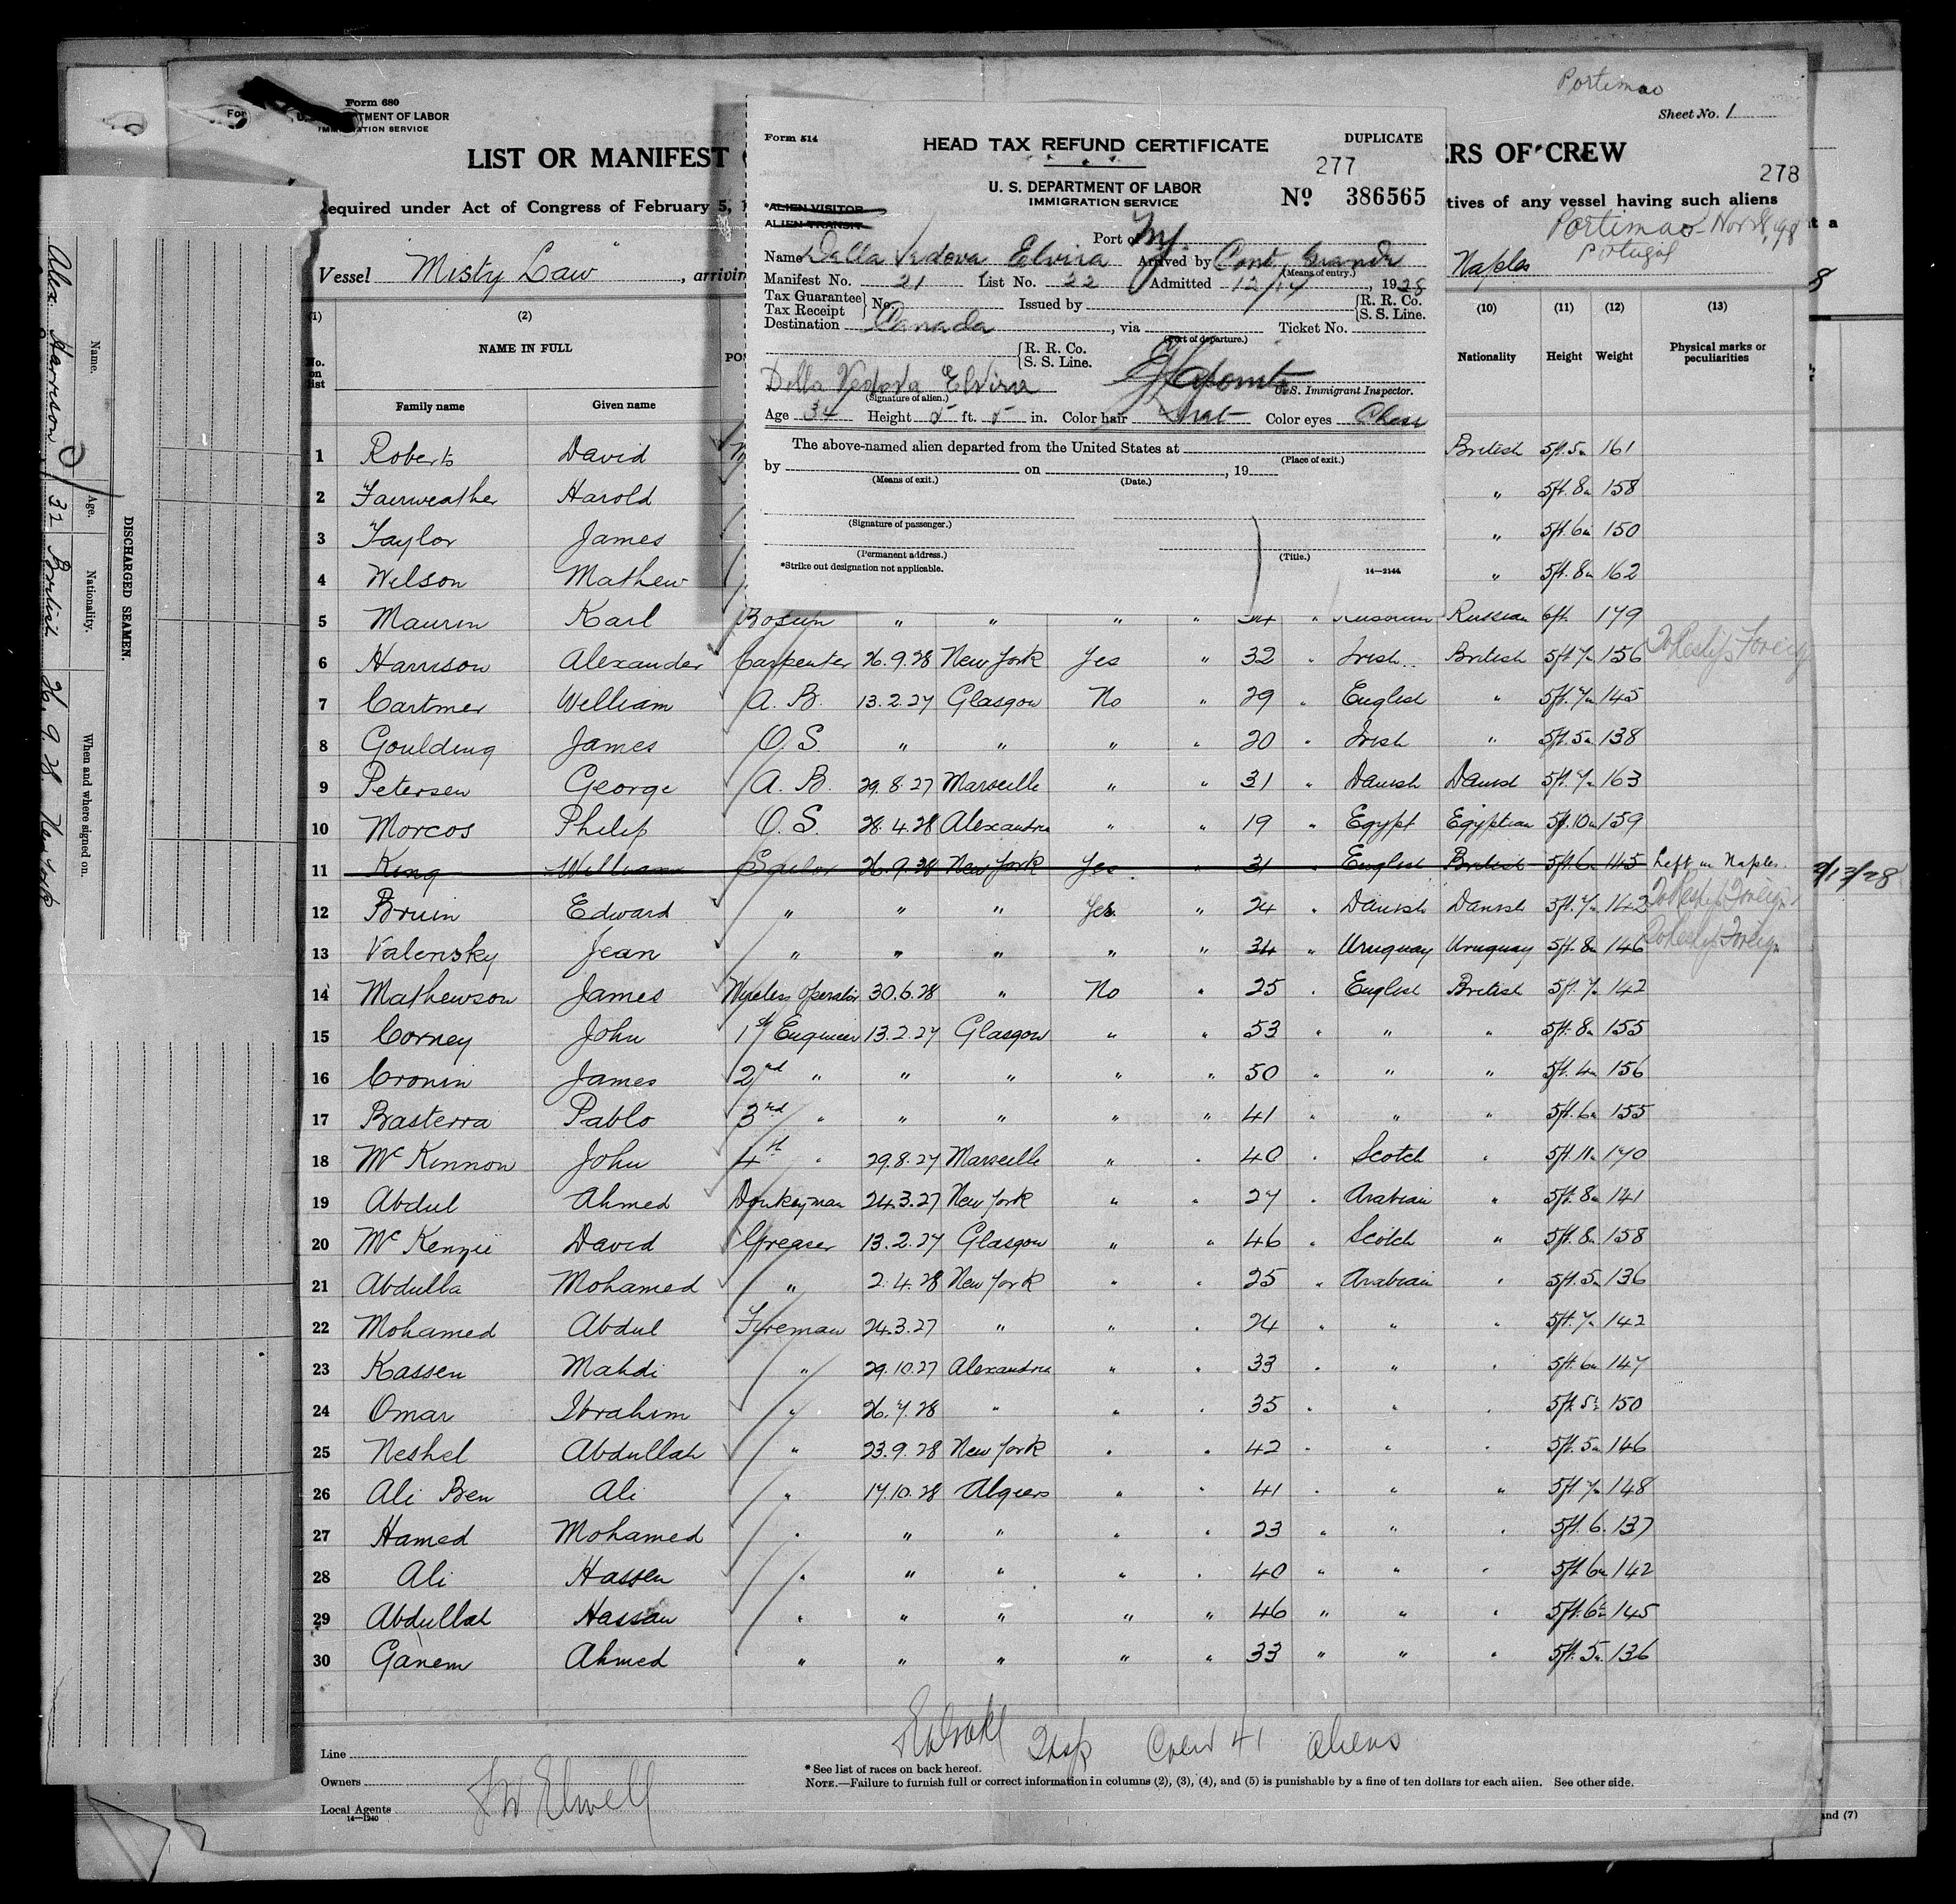 Portimao
Form 680
U. S. DEPARTMENT OF LABOR
IMMIGRATION SERVICE
Sheet No. 1
LIST OR MANIFEST
ERS OF CREW
278
Required under Act of Congress of February 5, 1
tives of any vessel having such aliens
Portimao - Nov
Portugal
Vessel Misty Law, arrivin
Naples
Form 514
HEAD TAX REFUND CERTIFICATE
DUPLICATE
277
U. S. DEPARTMENT OF LABOR
IMMIGRATION SERVICE
No 386565
*ALIEN VISITOR
ALIEN TRANSIT
Port of NY
Name Della Vedova Elvira Arrived by Cont Grande
(Means of entry.)
Manifest No. 21 List No. 22 Admitted 12/14, 1928
Tax Guarantee
Tax Receipt } No. Issued by { R. R. Co.
S. S. Line.
Destination Canada, via Ticket No.
(Port of departure.)
{ R. R. Co.
S. S. Line.
Della Vedova Elvira
(Signature of alien.)
U. S. Immigrant Inspector.
Age 34 Height 5 ft. 5 in. Color hair Color eyes
The above-named alien departed from the United States at
(Place of exit.)
by on , 19
(Means of exit.) (Date.)
(Signature of passenger.)
(Permanent address.) (Title.)
*Strike out designation not applicable.
14—2144
(1) (2) (10) (11) (12) (13)
No. on list NAME IN FULL PO Nationality Height Weight Physical marks or peculiarities
Family name Given name
1 Roberts David British 5ft.5in 161
2 Fairweather Harold " 5ft.8in 158
3 Taylor James " 5ft.6in 150
4 Wilson Mathew " 5ft.8in 162
5 Maurin Karl Bosun " " " " 34 " Russian Russian 6ft. 179
6 Harrison Alexander Carpenter 26.9.28 New York Yes " 32 " Irish British 5ft.7in 156 To Reship Foreign
7 Cartmer William A. B. 13.2.27 Glasgow No " 29 " English " 5ft.7in 145
8 Goulding James O. S. " " " " 20 " Irish " 5ft.5in 138
9 Petersen George A. B. 29.8.27 Marseille " " 31 " Danish Danish 5ft.7in 163
10 Morcos Philip O. S. 28.4.28 Alexandria " " 19 " Egypt Egyptian 5ft.10in 159
11 King William Sailor 26.9.28 New York Yes " 31 " English British 5ft.6in 145 Left in Naples.
12 Bruin Edward " " " Yes " 24 " Danish Danish 5ft.7in 142 To Reship Foreign
13 Valensky Jean " " " " " 34 " Uruguay Uruguay 5ft.8in 146 To Reship Foreign
14 Mathewson James Wireless Operator 30.6.28 " No " 25 " English British 5ft.7in 142
15 Corney John 1st Engineer 13.2.27 Glasgow " " 53 " " " 5ft.8in 155
16 Cronin James 2nd " " " " " 50 " " " 5ft.4in 156
17 Basterra Pablo 3rd " " " " " 41 " " " 5ft.6in 155
18 McKinnon John 4th " 29.8.27 Marseille " " 40 " Scotch " 5ft.11in 170
19 Abdul Ahmed Donkeyman 24.3.27 New York " " 27 " Arabian " 5ft.8in 141
20 McKenzie David Greaser 13.2.27 Glasgow " " 46 " Scotch " 5ft.8in 158
21 Abdulla Mohamed " 2.4.28 New York " " 25 " Arabian " 5ft.5in 136
22 Mohamed Abdul Fireman 24.3.27 " " " 24 " " " 5ft.7in 142
23 Kassen Mahdi " 29.10.27 Alexandria " " 33 " " " 5ft.6in 147
24 Omar Ibrahim " 26.7.28 " " " 35 " " " 5ft.5in 150
25 Neshel Abdullah " 23.9.28 New York " " 42 " " " 5ft.5in 146
26 Ali Ben Ali " 17.10.28 Algiers " " 41 " " " 5ft.7in 148
27 Hamed Mohamed " " " " " 23 " " " 5ft.6. 137
28 Ali Hassen " " " " " 40 " " " 5ft.6in 142
29 Abdullah Hassan " " " " " 46 " " " 5ft.6in 145
30 Ganem Ahmed " " " " " 33 " " " 5ft.5in 136
2/12/28
Insp Crew 41 aliens
Line
Owners
Local Agents
J W Elwell
14—1240
* See list of races on back hereof.
NOTE.—Failure to furnish full or correct information in columns (2), (3), (4), and (5) is punishable by a fine of ten dollars for each alien. See other side.
and (7)
DISCHARGED SEAMEN.
Name. Age. Nationality. When and where signed on.
Alex. Harrison 32 British 26 9 28 New York